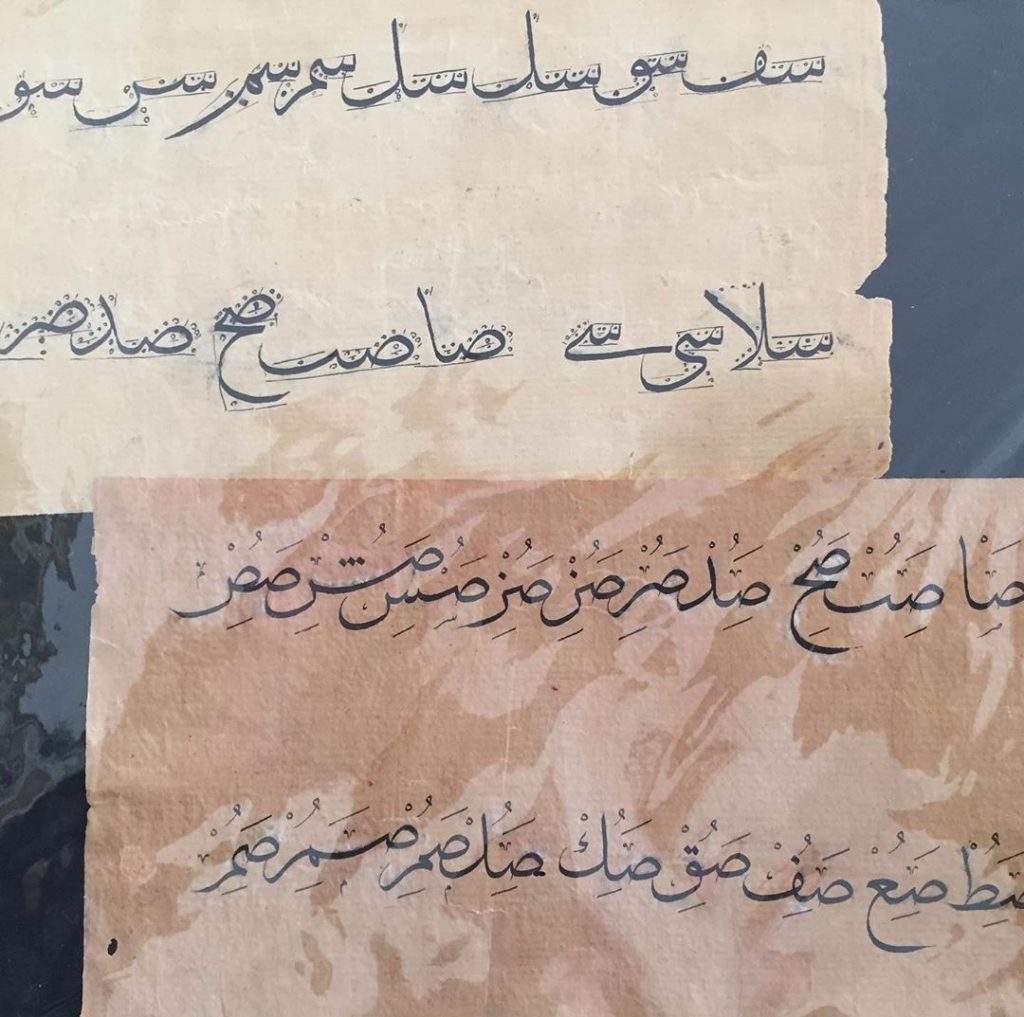 سف سق سك سل سم سم سن سو
سلا سى سے صا صب صح صد صر
صا صب صح صد صر صر صر صس صس صص
صط صع صف صق صك صل صم صم صم